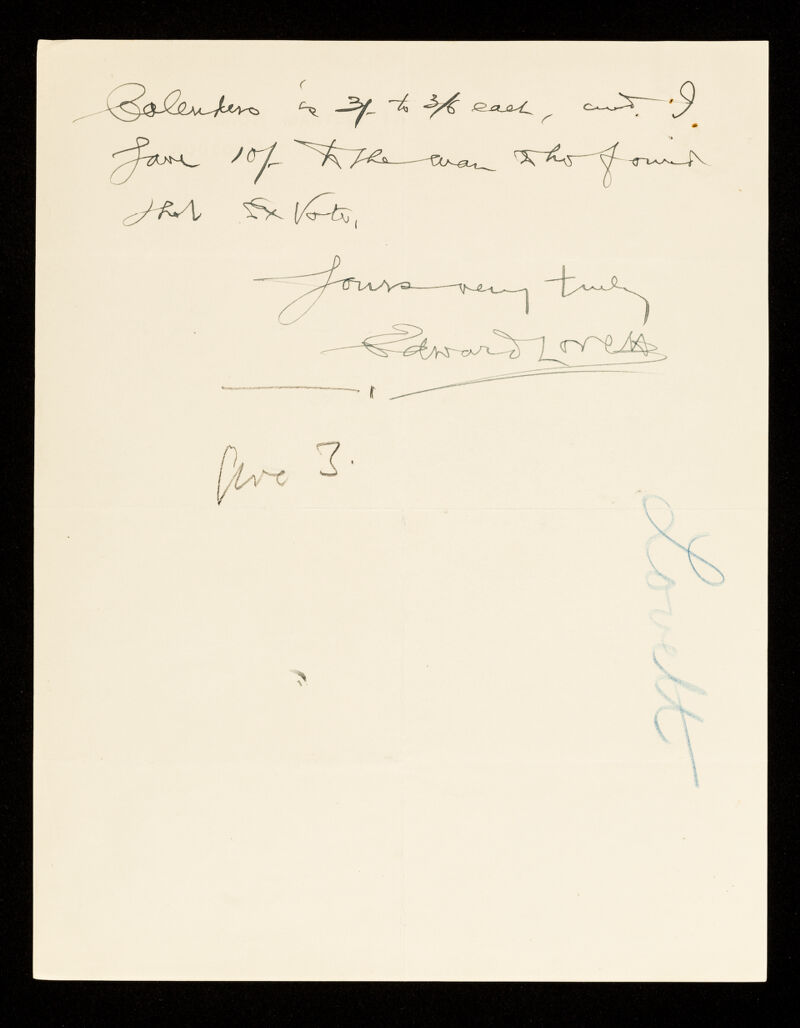 Calendars is 3/- to 3/6 each, and I
gave 10/- to the man who found
that Ex Voto,
Yours very truly
Edward Lovett
3.
Lovett